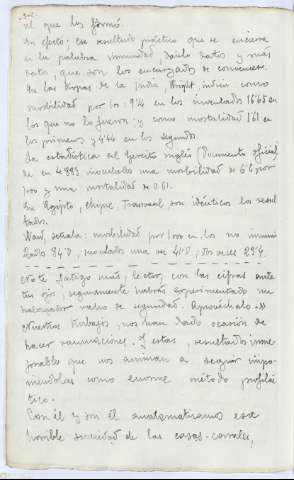 el que los formó.
En efecto: ese resultado práctico que se encierra
en la palabra inmunidad, daréla datos y más
datos, que son los encargados de convencer.
En las tropas de la India, Wright, indica como
morbilidad por 100: 9'24 en los inoculados 16'65 en
los que no lo fueron y como mortalidad 1'61 en
los primeros y 4'44 en los segundos.
La estadística del Ejército inglés (Documento oficial)
da en 4.883 inoculados una morbilidad de 6'6 por
1000 y una mortalidad de 0'61.
En Egipto, Chipre, Transvaal son idénticos los resul
tados.
señala: morbilidad por 1000 en los no inmuni
zados 84'0, inoculados una vez 41'0, dos veces 29'4.
No te fatigo más, lector, con las cifras ante
tus ojos, seguramente habrás experimentado un
halagador de seguridad. Aprovéchalo.
Nuestros trabajos, nos han dado ocasión de
hacer vacunaciones. Y estas, resultados inme
jorables que nos animan a seguir impo
niéndolas como enorme método profilác
tico.
Con él y sin él anatematizamos esa
horrible suciedad de las casas-corrales,